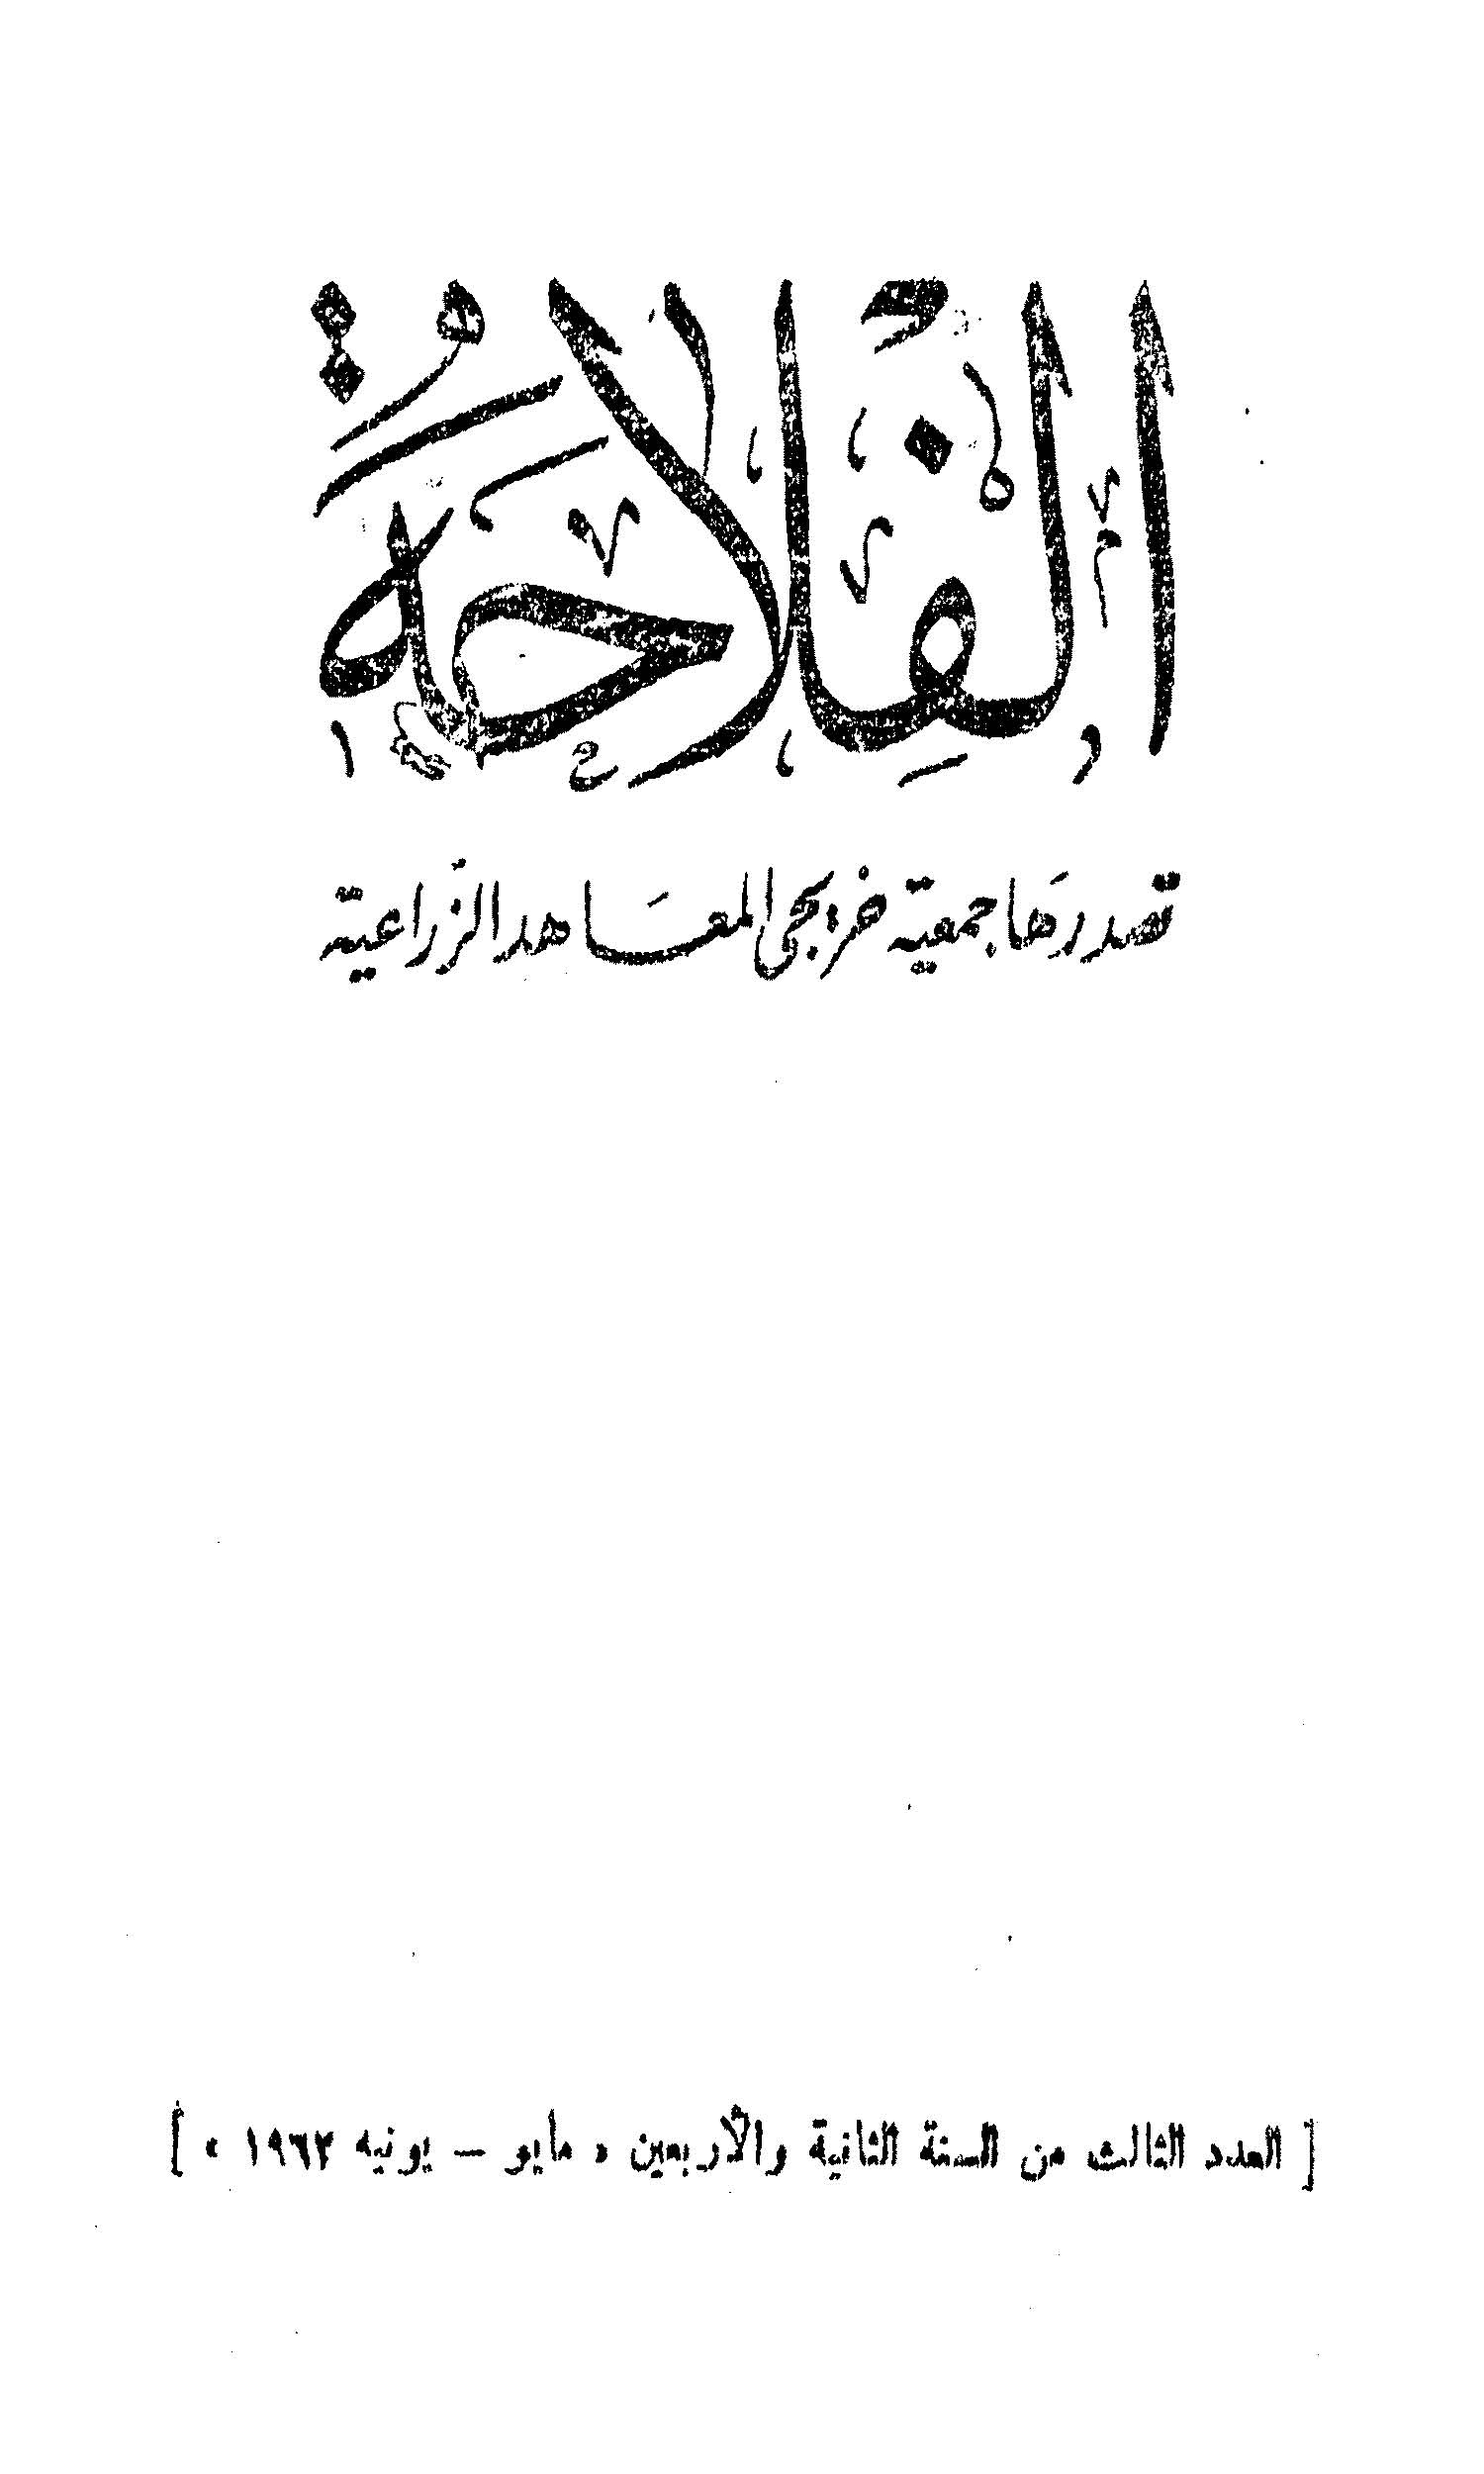 الفِلاحَةُ
تصدرهَا جمعية خريجى المعَاهد الزراعية
[ العدد الثالث من السنة الثانية والأربعين « مايو – يونيه ١٩٦٢ » ]